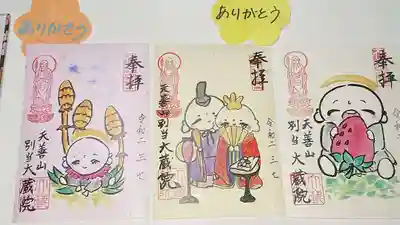 ありがとう
ありがとう
奉拝
天善山
別当大蔵院
令和二 三 七
奉拝
天善山
別当大蔵院
令和二 三 七
奉拝
天善山
別当大蔵院
令和二 三 七